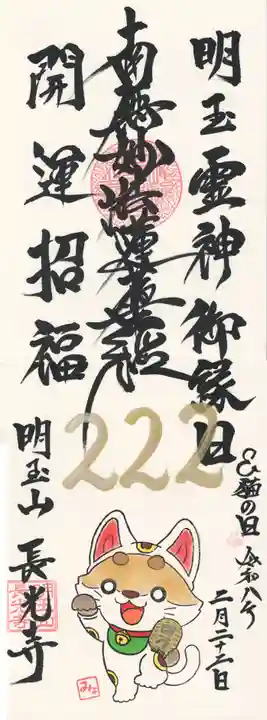 明玉霊神御縁日
南無妙法蓮華経
開運招福
222
猫の日 令和八年
二月二十二日
明玉山 長光寺